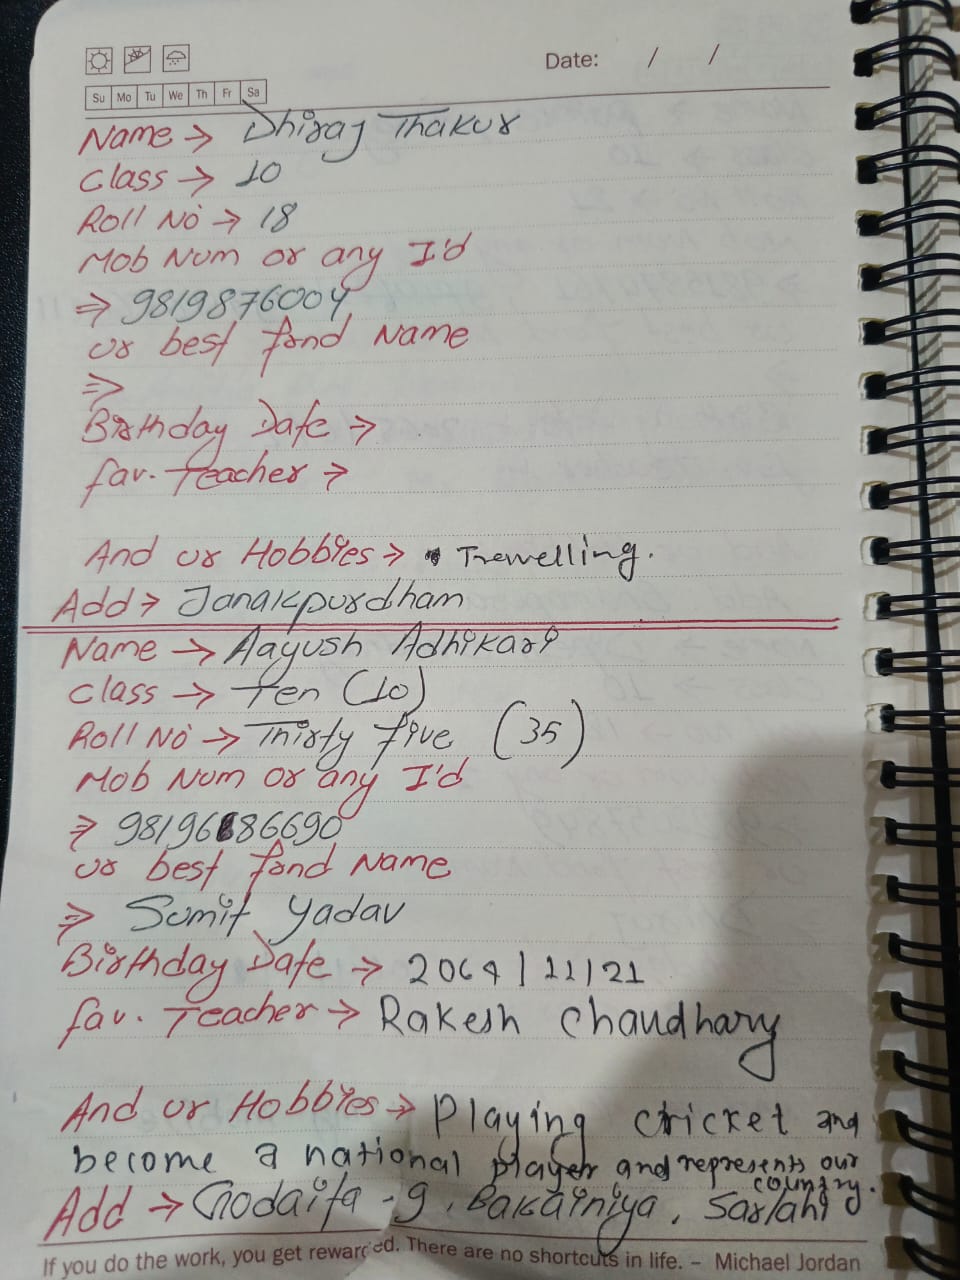 Date: / /
Su Mo Tu We Th Fr Sa
Name → Dhiraj Thakur
Class → 10
Roll No → 18
Mob Num or any I'd
⇒ 9819876004
or best frnd Name
⇒
Birthday Date →
fav. Teacher →
And ur Hobbies → Trewelling.
Add → Janakpurdham
Name → Aayush Adhikari
Class → Ten (10)
Roll No → Thirty five (35)
Mob Num or any I'd
⇒ 9819686690
ur best frnd Name
⇒ Sumit Yadav
Birthday Date → 2064/11/21
fav. Teacher → Rakesh Chaudhary
And ur Hobbies → Playing cricket and
become a national player and represents our
country.
Add → Godaita - 9, Bakainiya, Sarlahi
If you do the work, you get rewarded. There are no shortcuts in life. – Michael Jordan